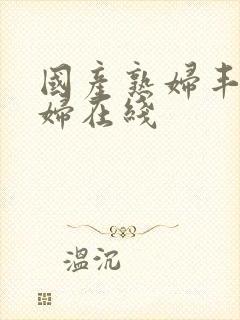 國產熟婦丰
婦在綫
溫沉